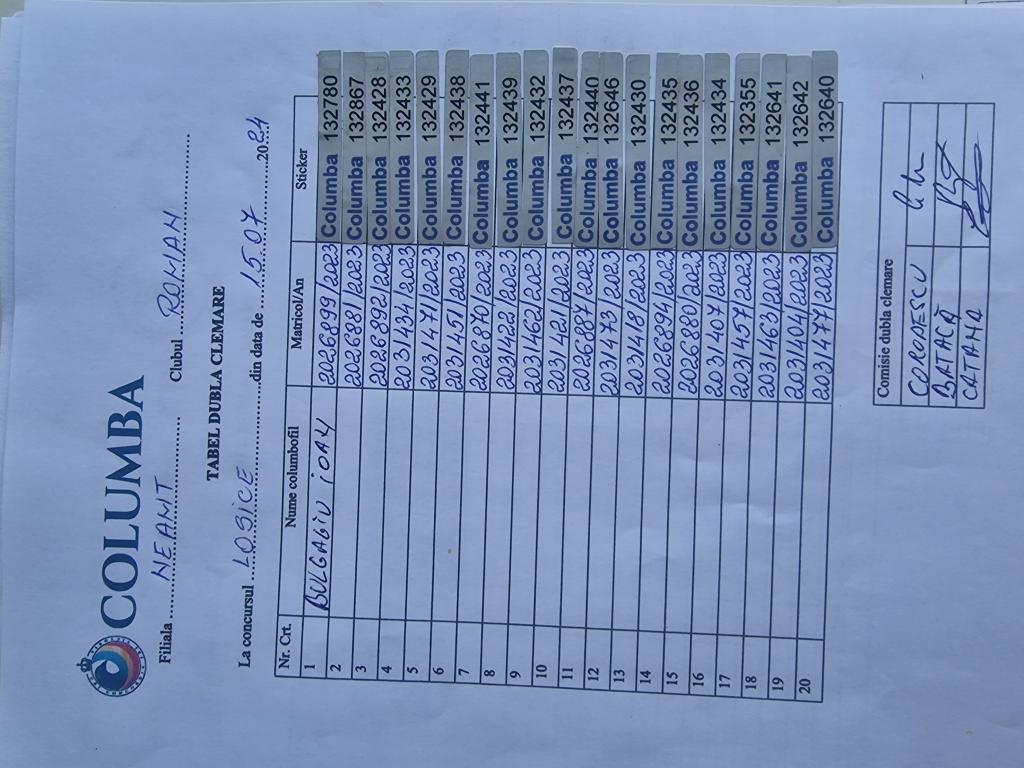 COLUMBA
Filiala NEAMT Clubul ROMAN
TABEL DUBLA CLEMARE
La concursul LOSICE din data de 15.07 2024
Nr. Crt. Nume columbofil Matricol/An Sticker
1 BULGAGIU IOAN 2026899/2023 Columba 132780
2 2026881/2023 Columba 132867
3 2026892/2023 Columba 132428
4 2031434/2023 Columba 132433
5 2031471/2023 Columba 132429
6 2031451/2023 Columba 132438
7 2026870/2023 Columba 132441
8 2031422/2023 Columba 132439
9 2031462/2023 Columba 132432
10 2031421/2023 Columba 132437
11 2026887/2023 Columba 132440
12 2031473/2023 Columba 132646
13 2031418/2023 Columba 132430
14 2026894/2023 Columba 132435
15 2026880/2023 Columba 132436
16 2031407/2023 Columba 132434
17 2031457/2023 Columba 132355
18 2031463/2023 Columba 132641
19 2031404/2023 Columba 132642
20 2031477/2023 Columba 132640
Comisie dubla clemare
CORODESCU
BATACĂ
CATANA